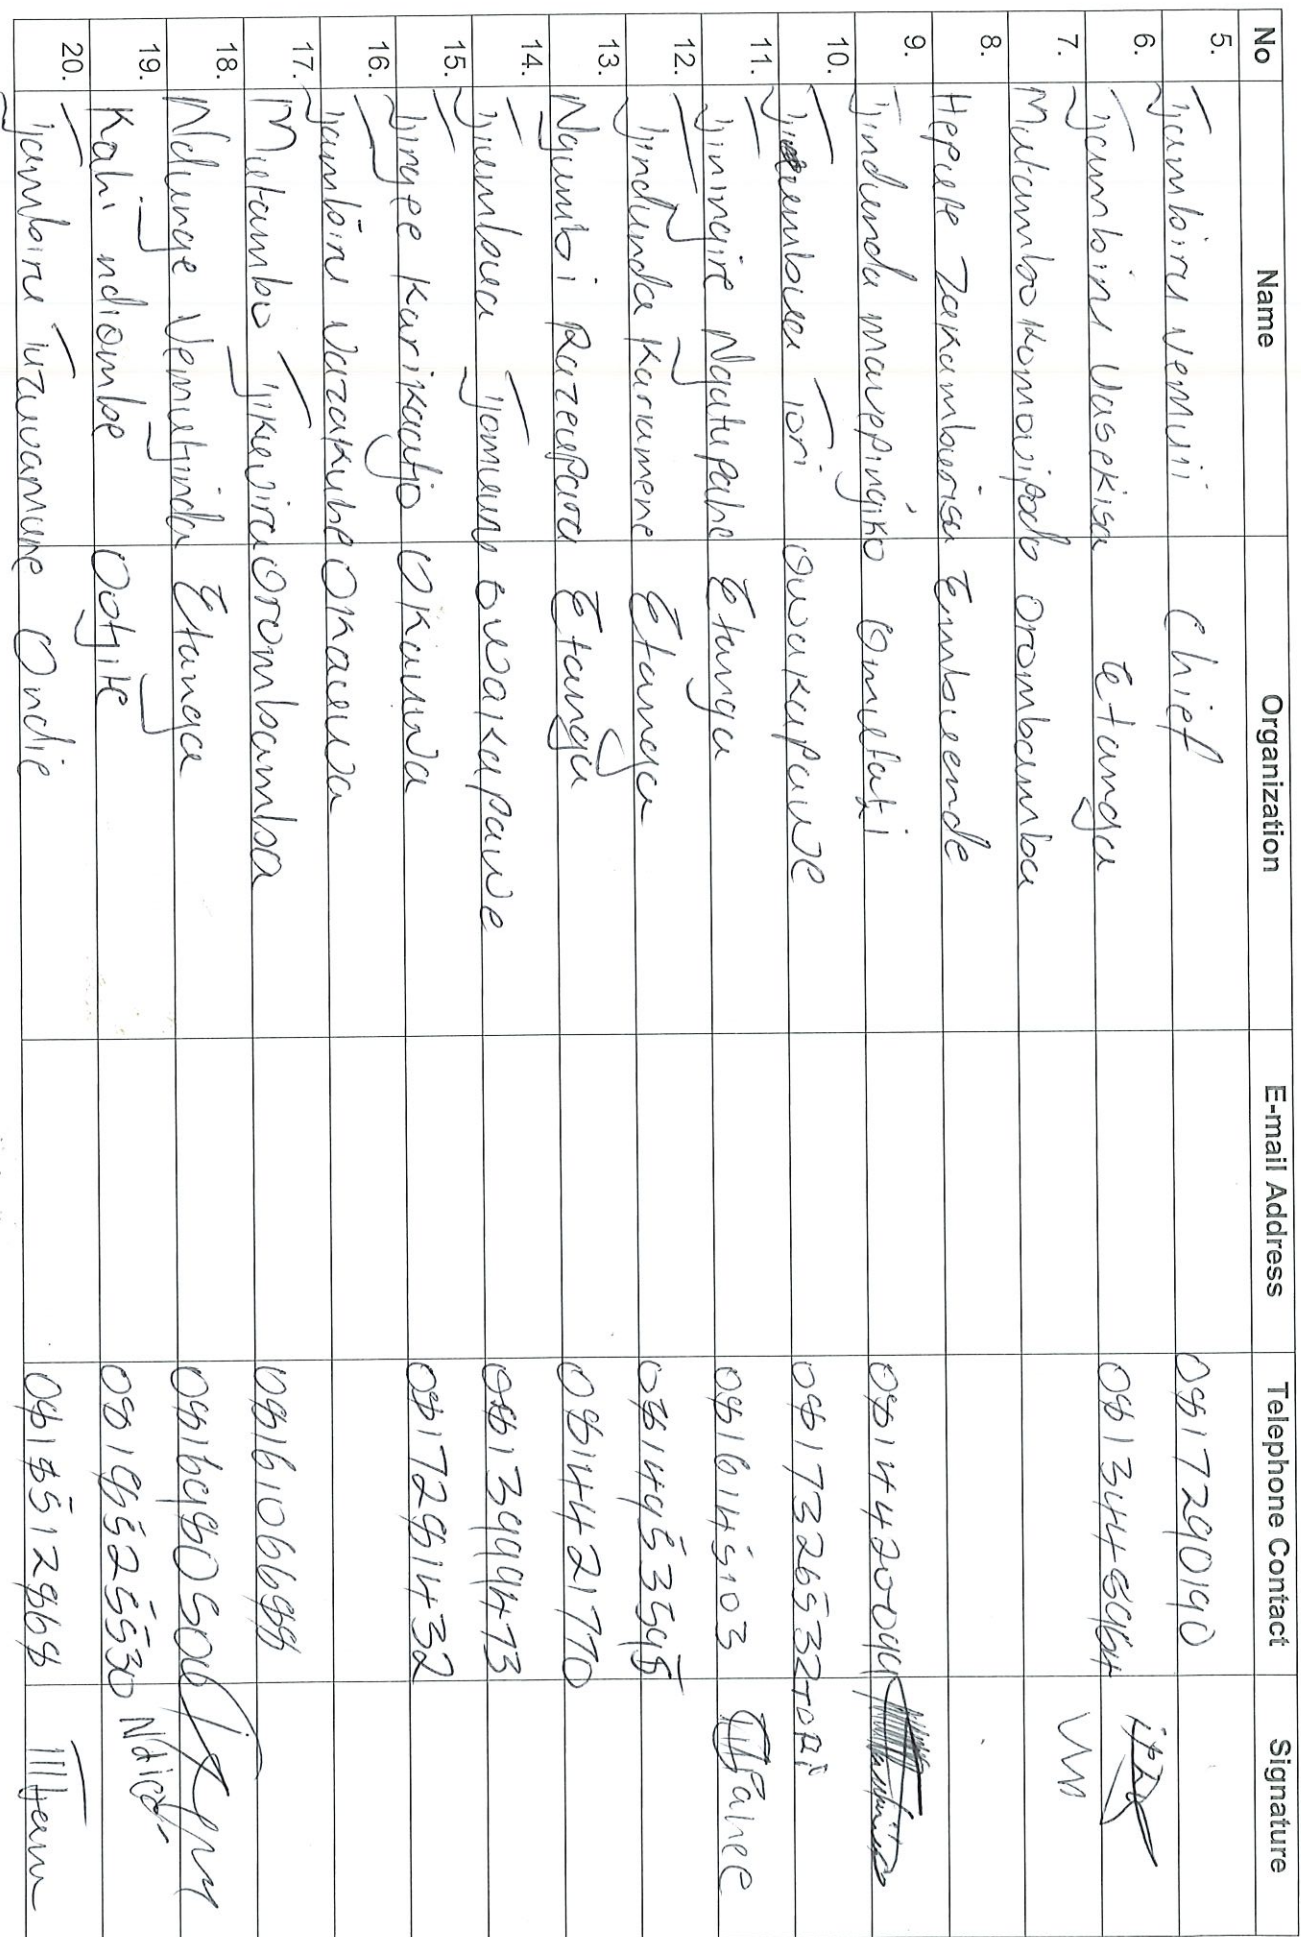 No Name Organization E-mail Address Telephone Contact Signature
5. Tjambiru Vemuii Chief 0817290190
6. Tjambiru Uasekisa Etanga 081344
7. Mutambo Komouipado Orombamba
8. Hepute Zakamburisa Embuende
9. Tjindunda Omutati 0814420091
10. Tori Owakapawe 0817326532 TORI
11. Tjiningire Ngatupahe Etanga 0816145103
12. Tjindunda Kariamene Etanga 0814953598
13. Ngumbi Razeupava Etanga 0814421770
14. Tjiumbua Tjomuny Owakapawe 0813999473
15. Tjingee Karikautjo Okauwa 0817281432
16. Tjambiru Vazakuhe Okauwa
17. Mutambo Tjikuvira Orombamba 0816106688
18. Ndunge Vemutjinda Etanga
19. Kahi ndiombe Ootjite 0818525530
20. Tjambiru Tuzuvamune Ondie 0818512868